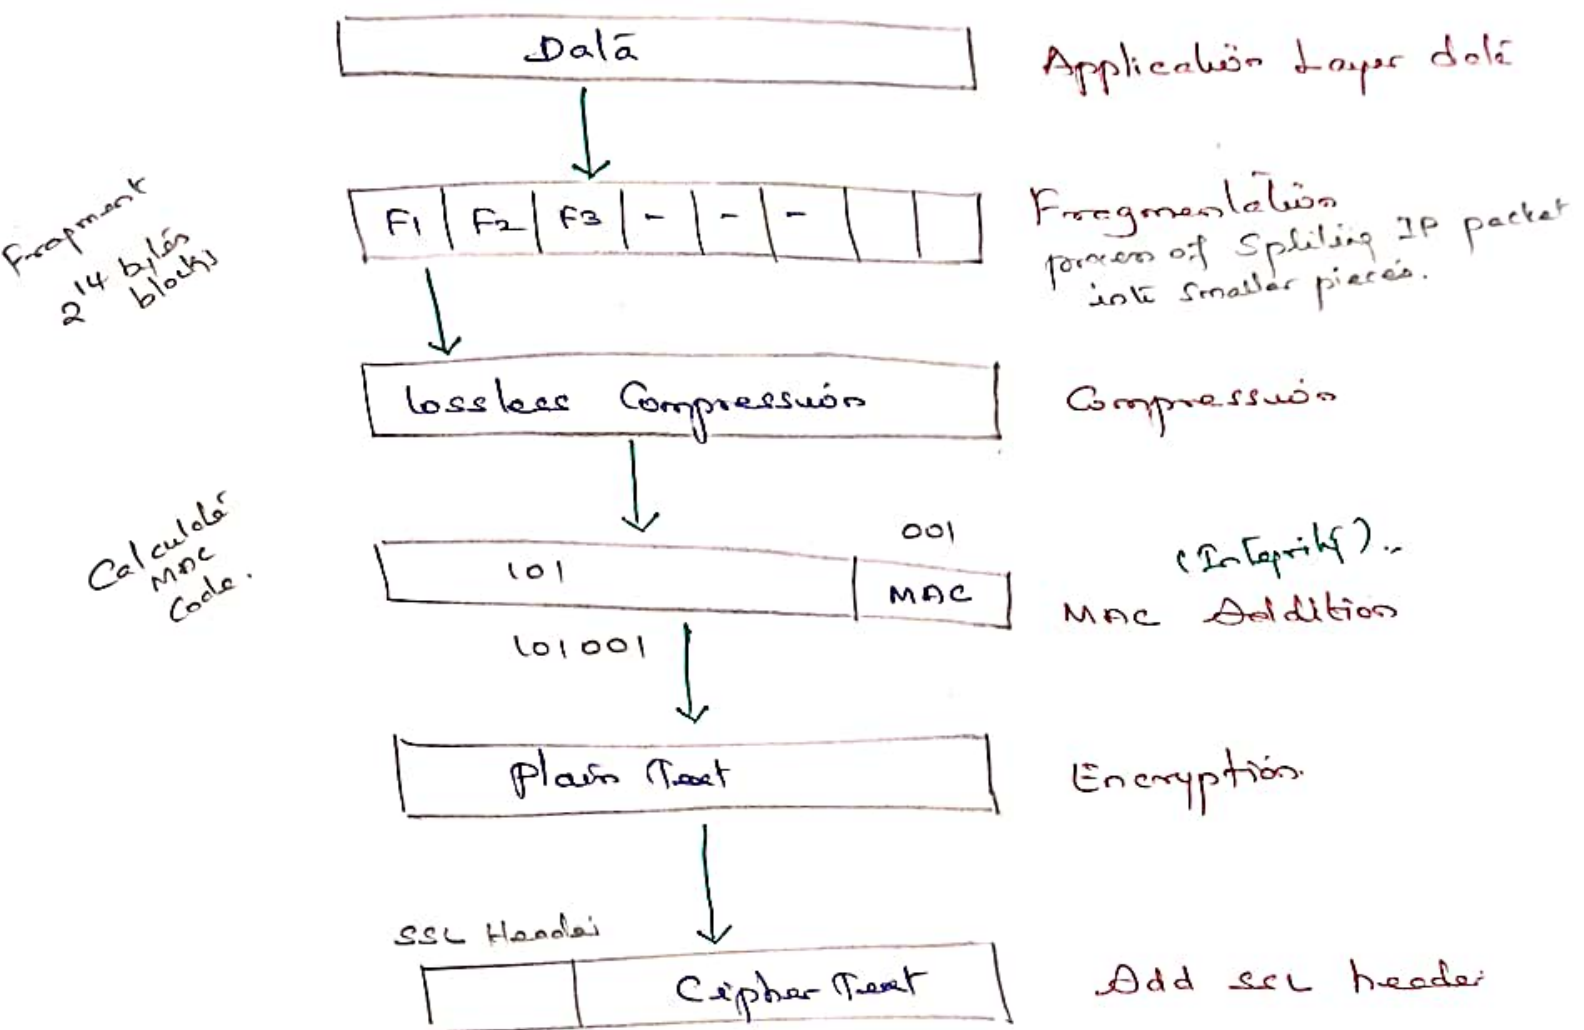 Data
Application Layer data
Fragment
2^14 bytes
blocks
F1 F2 F3 - - -
Fragmentation
process of Spliting IP packet
into smaller pieces.
lossless Compression
Compression
Calculate
MAC
Code.
001
101
MAC
(Integrity)..
MAC Addition
101001
Plain Text
Encryption.
SSL Header
Cipher Text
Add SSL header